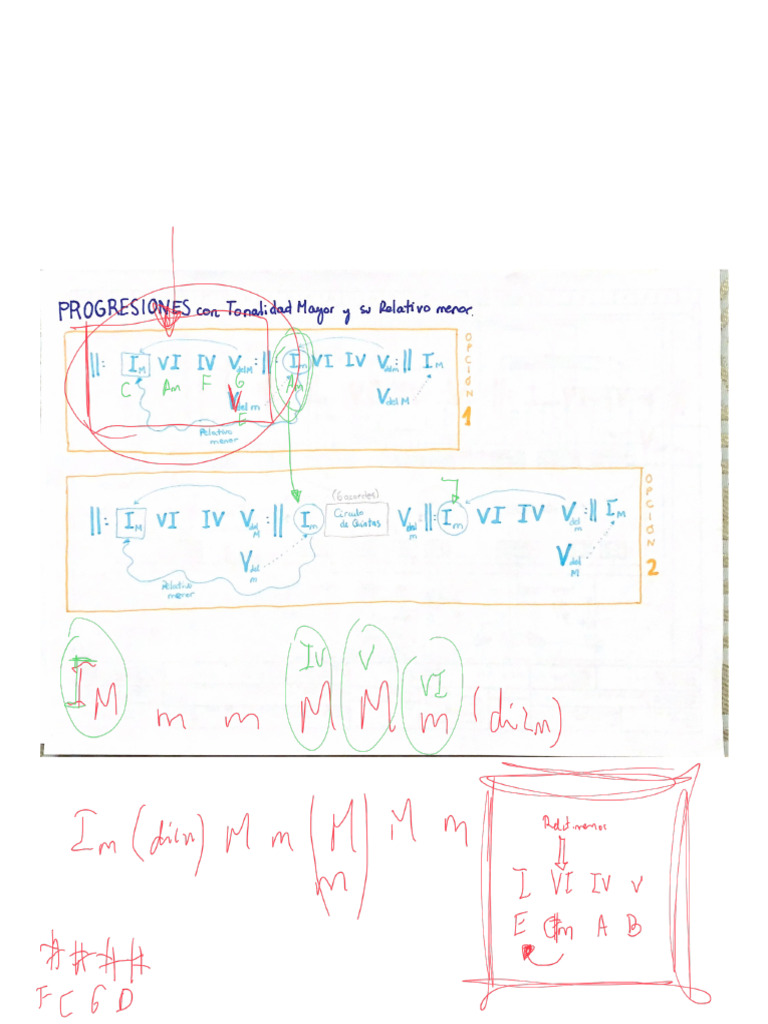 PROGRESIONES con Tonalidad Mayor y su Relativo menor.
||: I M VI IV V del M :||: I m VI IV V del m :|| I M
C Am F G Am
V del m V del M
E
Relativo menor
OPCIÓN 1
(6 acordes)
||: I M VI IV V del M :|| I m Círculo de Quintas V del m ||: I m VI IV V del m :|| I M
V del m V del M
Relativo menor
OPCIÓN 2
I IV V VI
M m m M M m (dism)
I m (dism) M m (M m) M m
Relat. menor
I VI IV V
E C#m A B
# # # #
F C G D